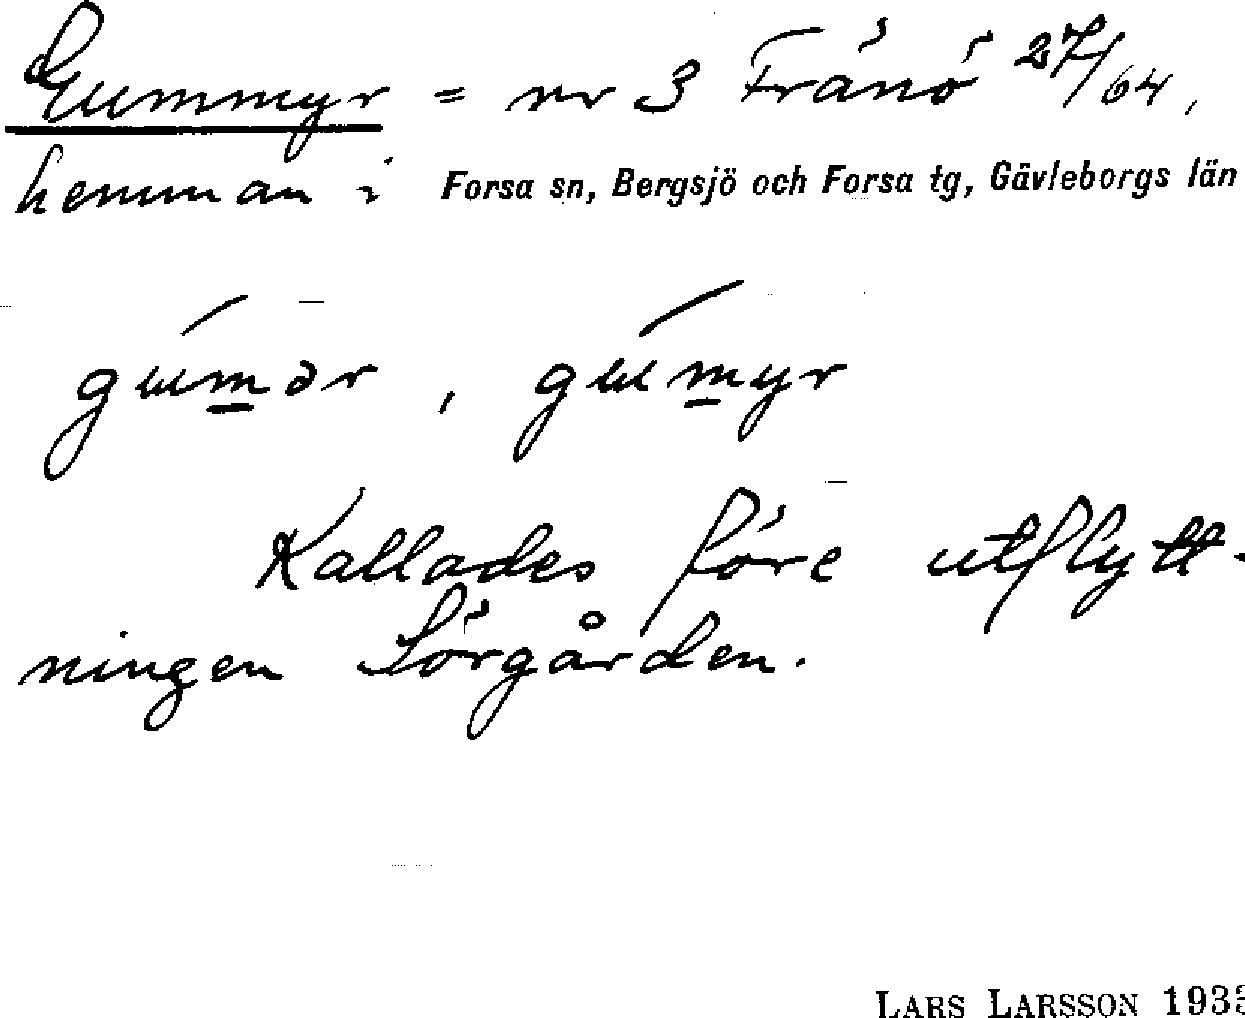 Gummyr = nr 3 Fränö 27/64,
hemman i Forsa sn, Bergsjö och Forsa tg, Gävleborgs län
gumər, gumyr
Kallades före utflytt-
ningen Sörgården.
LARS LARSSON 1935